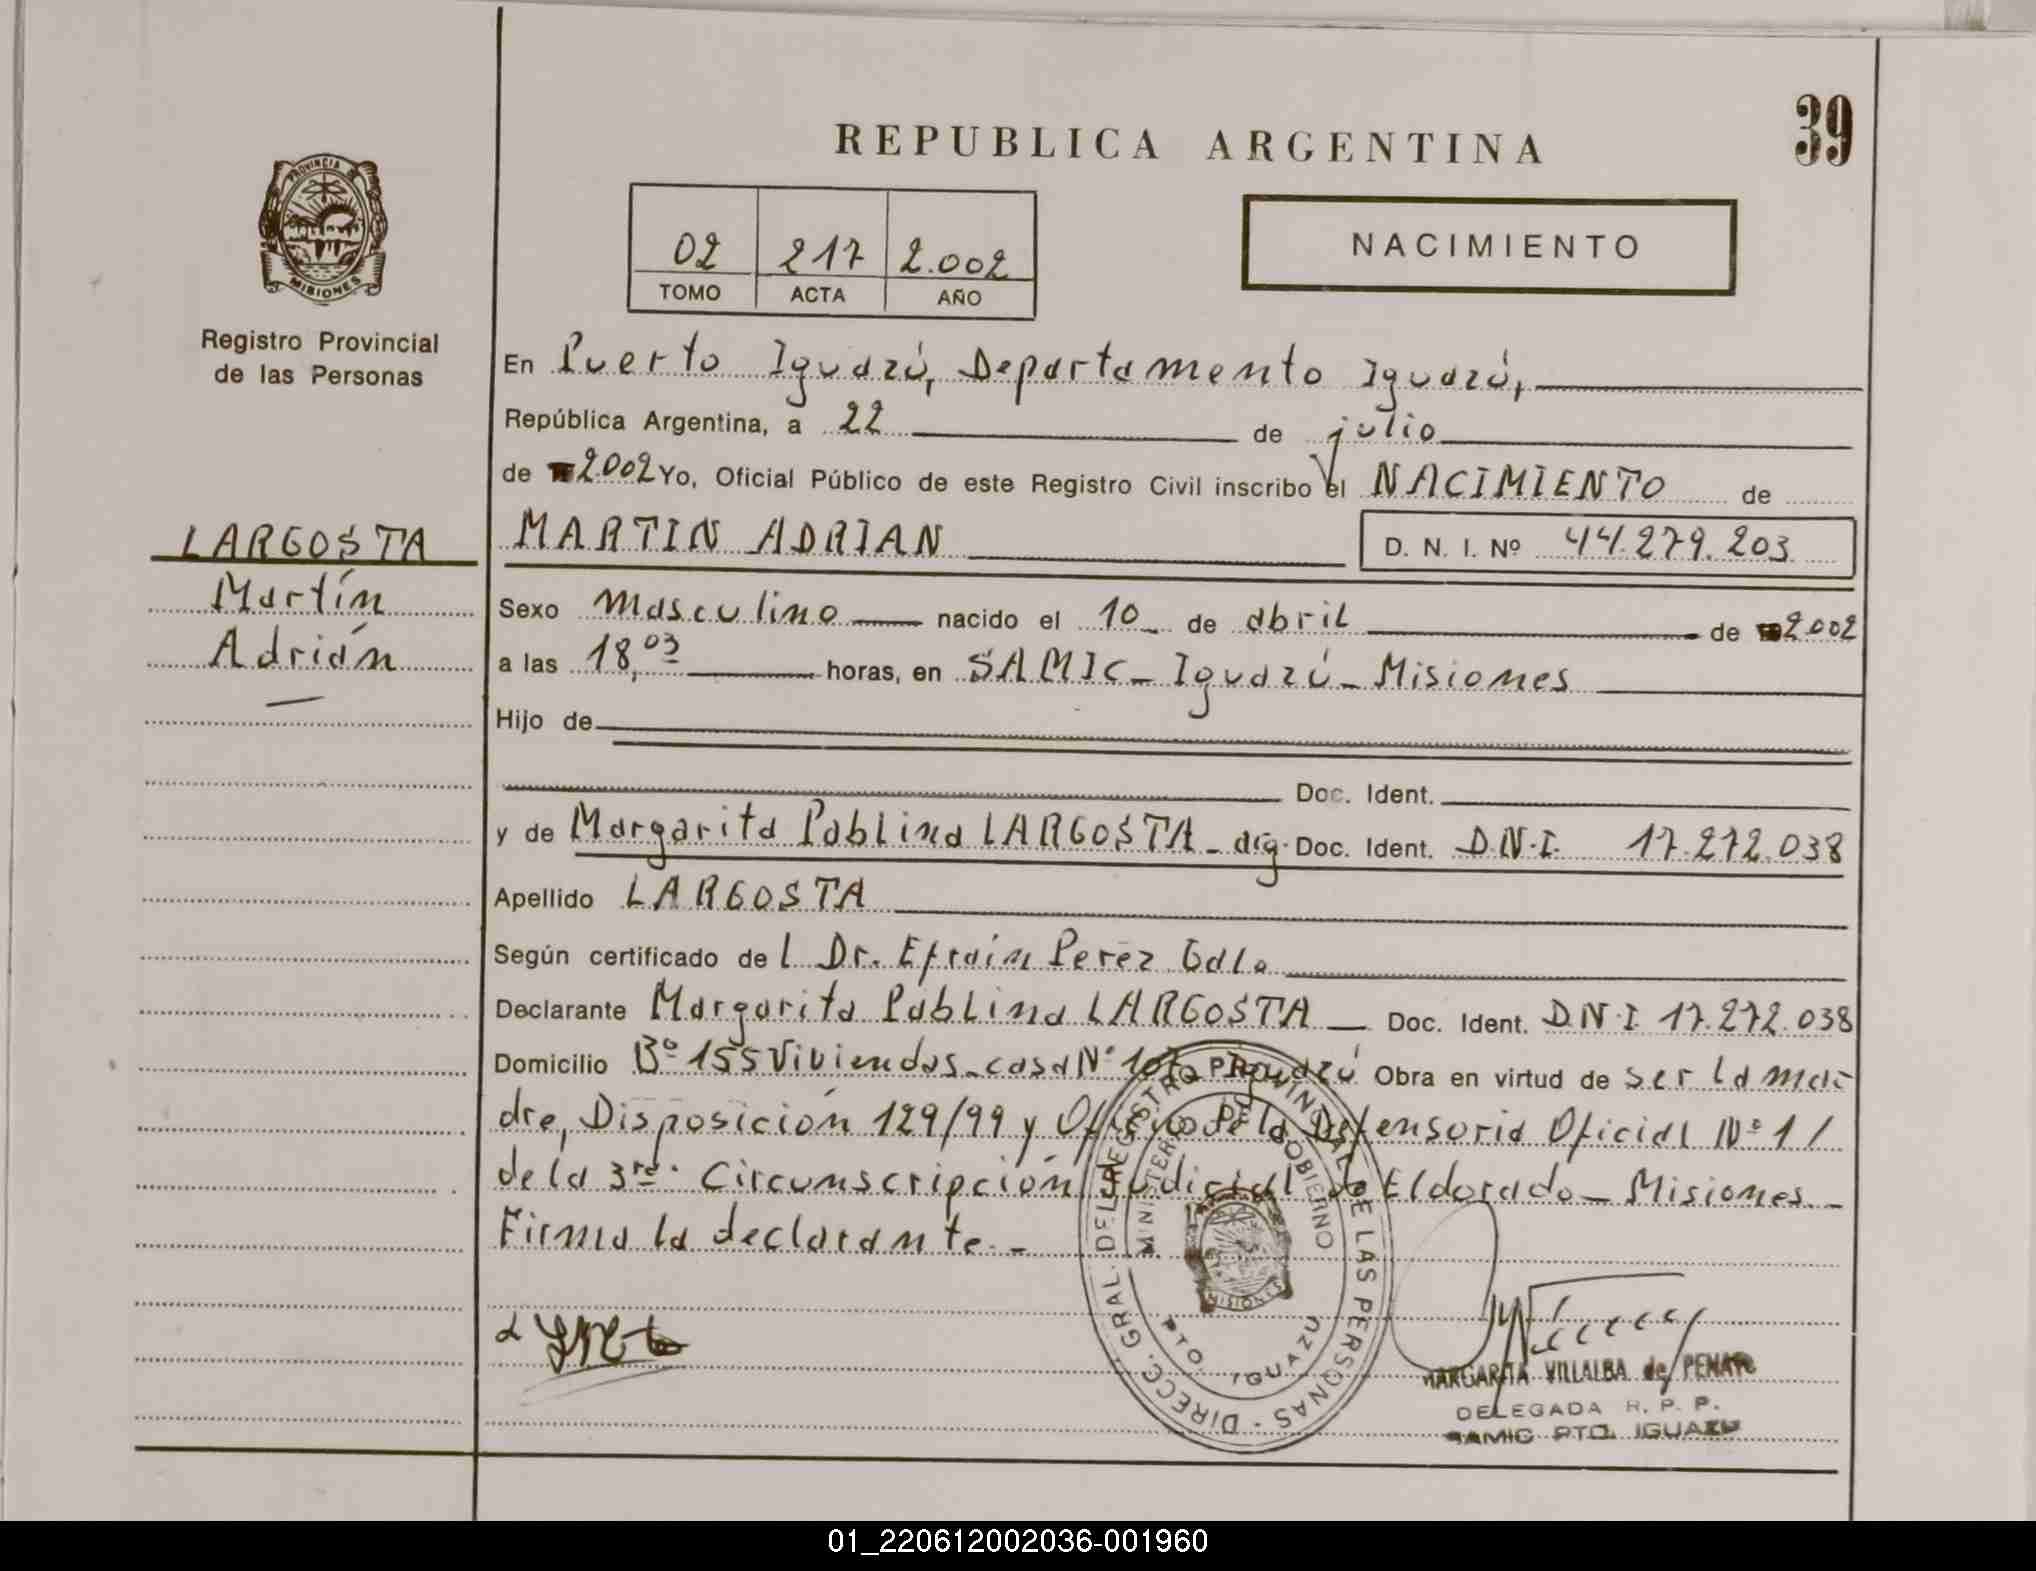 39
REPUBLICA ARGENTINA
PROVINCIA DE
MISIONES
02 217 2.002
TOMO ACTA AÑO
NACIMIENTO
Registro Provincial
de las Personas
LARGOSTA
Martín
Adrián
En Puerto Iguazú, Departamento Iguazú,
República Argentina, a 22 de julio
de 2.002 Yo, Oficial Público de este Registro Civil inscribo el NACIMIENTO de
MARTIN ADRIAN D. N. I. Nº 44.279.203
Sexo masculino nacido el 10 de abril de 2.002
a las 18,03 horas, en SAMIC - Iguazú - Misiones
Hijo de
Doc. Ident.
y de Margarita Pablina LARGOSTA - arg. Doc. Ident. D.N.I. 17.272.038
Apellido LARGOSTA
Según certificado del Dr. Efraín Perez
Declarante Margarita Pablina LARGOSTA — Doc. Ident. D.N.I. 17.272.038
Domicilio Bº 155 Viviendas - casa Nº Iguazú Obra en virtud de ser la ma-
dre, Disposición 129/99 y Oficio de la Defensoria Oficial Nº 1 /
de la 3ra. Circunscripción Judicial de Eldorado - Misiones -
Firma la declarante. -
DIRECC. GRAL. DEL REGISTRO PROVINCIAL DE LAS PERSONAS -
MINISTERIO GOBIERNO
MISIONES
PTO. IGUAZU
MARGARITA VILLALBA de
DELEGADA R. P. P.
SAMIC PTO. IGUAZU
01_220612002036-001960